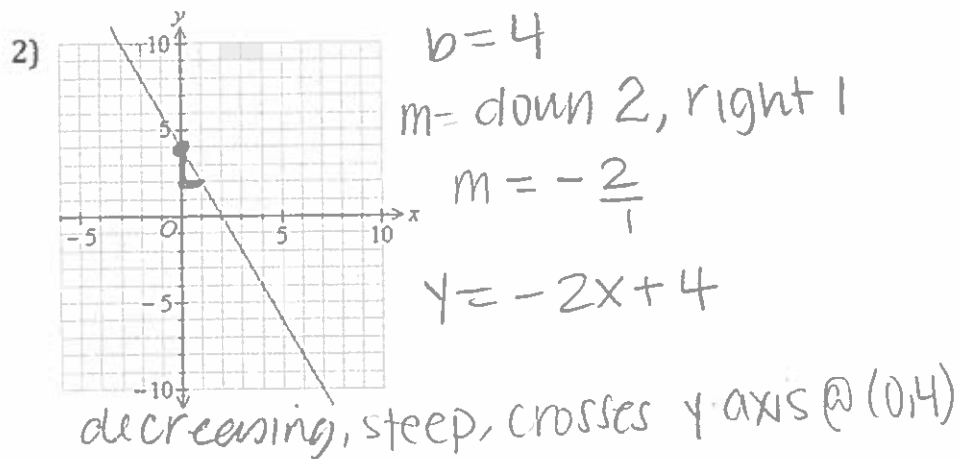 2)
y
10
5
O
-5
5
10
x
-5
-10
b=4
m= down 2, right 1
m = - 2/1
y = -2x+4
decreasing, steep, crosses y axis @ (0,4)